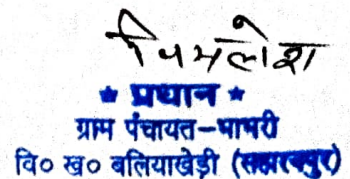 विमलेश
* प्रधान *
ग्राम पंचायत-पापरी
वि० ख० बलियाखेड़ी (सहारनपुर)